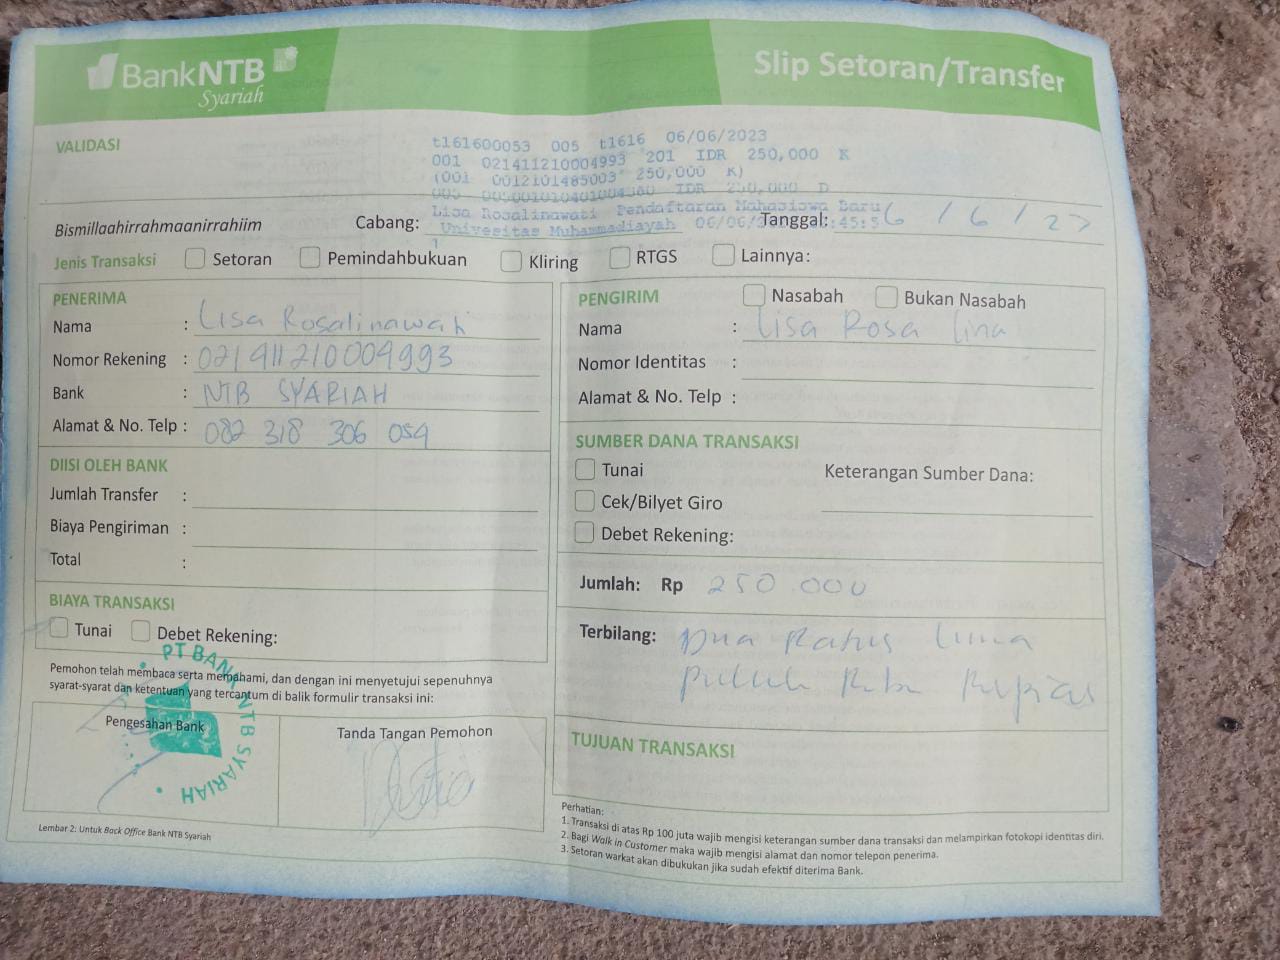 BankNTB
Syariah
Slip Setoran/Transfer
VALIDASI
t161600053 005 t1616 06/06/2023
001 021411210004993 201 IDR 250,000 K
(001 0012101485003 250,000 K)
IDR 250,000 D
Lisa Rosalinawati Pendaftaran Mahasiswa Baru
Univesitas Muhammadiayah
Bismillaahirrahmaanirrahiim
Cabang:
Tanggal: 6 / 6 / 23
Jenis Transaksi Setoran Pemindahbukuan Kliring RTGS Lainnya:
PENERIMA
Nama : Lisa Rosalinawati
Nomor Rekening : 021411210004993
Bank : NTB SYARIAH
Alamat & No. Telp : 082 318 306 059
DIISI OLEH BANK
Jumlah Transfer :
Biaya Pengiriman :
Total :
BIAYA TRANSAKSI
Tunai Debet Rekening:
Pemohon telah membaca serta memahami, dan dengan ini menyetujui sepenuhnya
syarat-syarat dan ketentuan yang tercantum di balik formulir transaksi ini:
Pengesahan Bank
PT BANK NTB SYARIAH
Tanda Tangan Pemohon
Lembar 2: Untuk Back Office Bank NTB Syariah
PENGIRIM Nasabah Bukan Nasabah
Nama : Lisa Rosa lina
Nomor Identitas :
Alamat & No. Telp :
SUMBER DANA TRANSAKSI
Tunai Keterangan Sumber Dana:
Cek/Bilyet Giro
Debet Rekening:
Jumlah: Rp 250 000
Terbilang: Dua Ratus lima
puluh Ribu Rupiah
TUJUAN TRANSAKSI
Perhatian:
1. Transaksi di atas Rp 100 juta wajib mengisi keterangan sumber dana transaksi dan melampirkan fotokopi identitas diri.
2. Bagi Walk in Customer maka wajib mengisi alamat dan nomor telepon penerima.
3. Setoran warkat akan dibukukan jika sudah efektif diterima Bank.